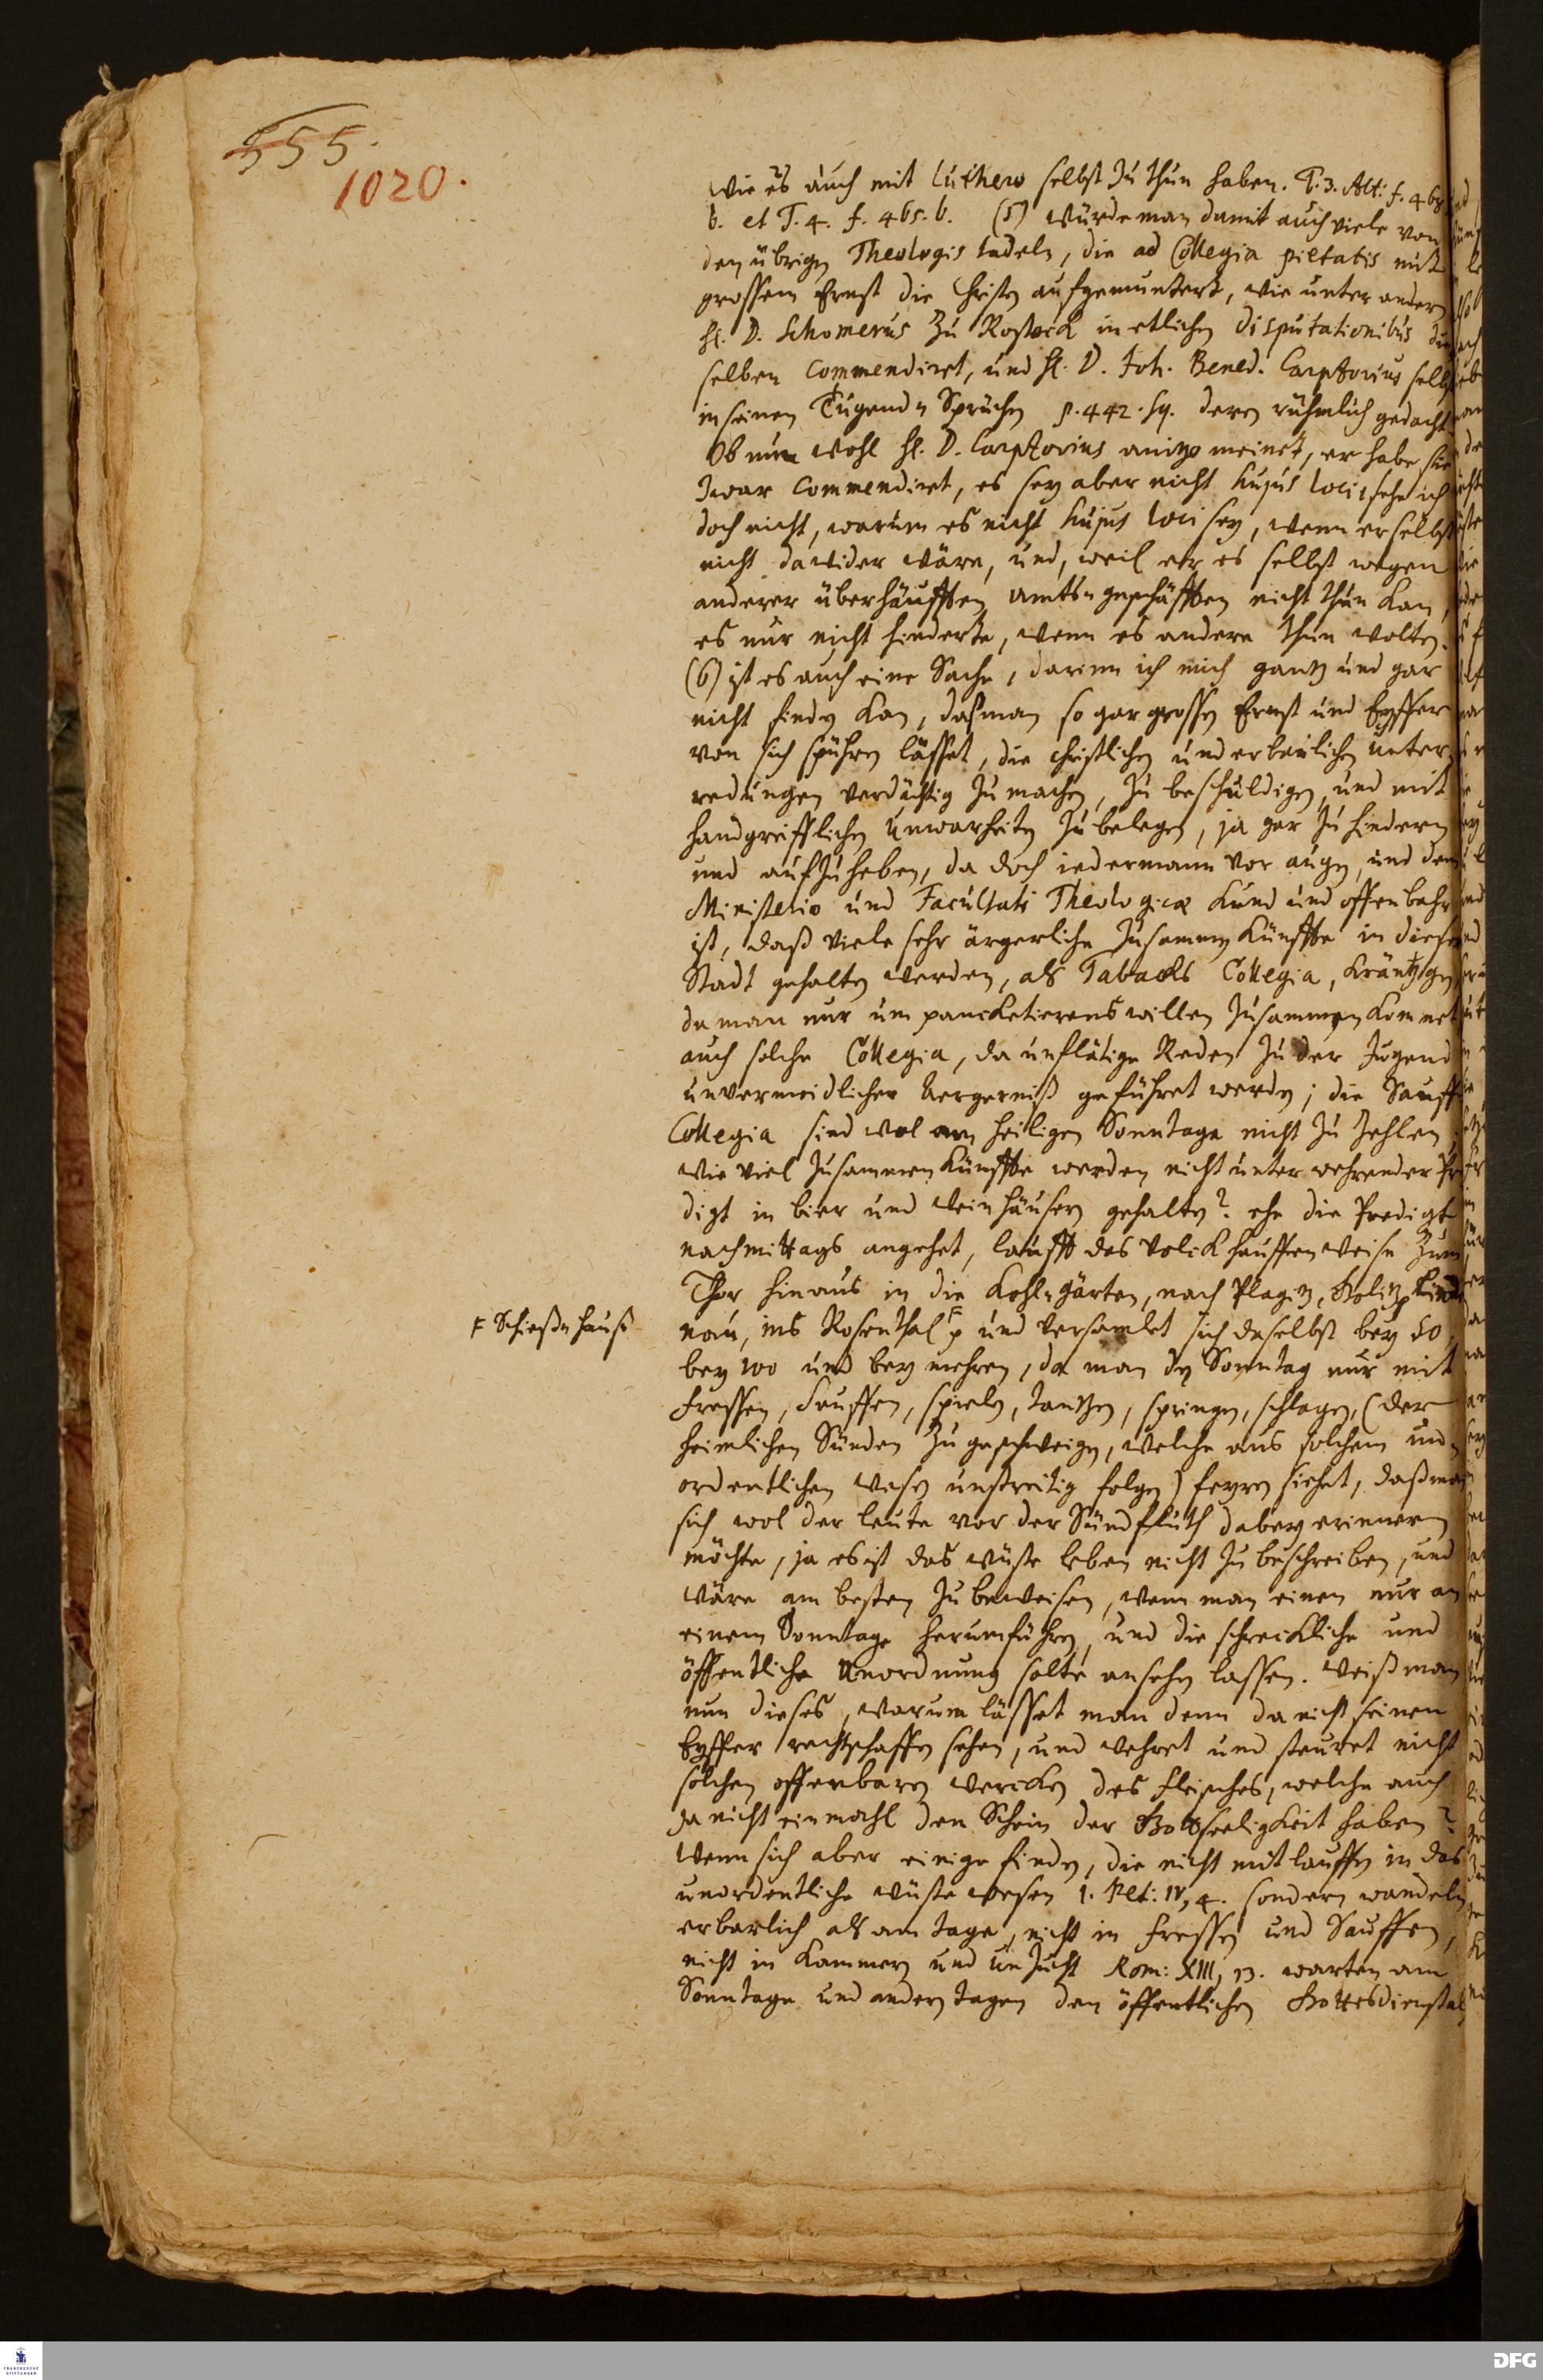 555.
1020.
wie es auch mit Luthero selbst zu thun haben. T. 3. Alt: f. 468
b. et T. 4. f. 465. b. (5) würde man damit auch viele von
den übrigen Theologis tadeln, die ad Collegia pietatis mit
grossem Ernst die Christen aufgemuntert, wie unter andern
H. D. Schomerus zu Rostock in etlichen Disputationibus die
selben commendiret, und H. D. Joh. Bened. Carpzovius selbst
in seinen Tugend-Sprüchen p. 442. sq. deren rühmlich gedacht
Ob nun wohl H. D. Carpzovius anitzo meinet, er habe sie
zwar commendiret, es sey aber nicht hujus loci, sehe ich
doch nicht, warum es nicht hujus loci sey, wenn er selbst
nicht dawider wäre, und, weil er es selbst wegen
anderer überhäufften Amts-geschäfften nicht thun kan,
es nur nicht hinderte, wenn es andere thun wolten.
(6) ist es auch eine Sache, darinn ich mich gantz und gar
nicht finden kan, daß man so gar grossen Ernst und Eyffer
von sich spühren lässet, die christlichen und erbaulichen Unter-
redungen verdächtig zu machen, zu beschuldigen, und mit
handgreifflichen Unwarheiten zu belegen, ja gar zu hindern
und aufzuheben, da doch iedermann vor augen, und dem
Ministerio und Facultati Theologicæ kund und offenbahr
ist, daß viele sehr ärgerliche Zusammen Künffte in dieser
Stadt gehalten werden, als Tabacks Collegia, Kräntzgen,
da man nur um panckетierens willen zusammen kommet
auch solche Collegia, da unflätige Reden zu der Jugend
unvermeidlicher Aergerniß geführet werden; die Sauff-
Collegia sind wol am heiligen Sonntage nicht zu zehlen,
wie viel Zusammen Künffte werden nicht unter wehrender Pre
digt in bier und Wein häusern gehalten? ehe die Predigt
nachmittags angehet, laufft das Volck hauffenweise zum
Thor hinaus in die Kohl-gärten, nach Plagwitz, Golitz, Linde
nau, ins Rosenthal F p und versamlet sich daselbst bey 50
F Schieß-hauß
bey 100 und bey mehren, da man den Sonntag nur mit
Fressen, Sauffen, spielen, tantzen, springen, schlagen, (der
heimlichen Sünden zu geschweigen, welche aus solchem un-
ordentlichen Wesen unstreitig folgen) feyren siehet, daß man
sich wol der leute vor der Sündfluth dabey erinnern
möchte, ja es ist das wüste leben nicht zu beschreiben, und
wäre am besten zu beweisen, wenn man einen nur an
einem Sonntage herumführen, und die schreckliche und
öffentliche Unordnung solte ansehen lassen. Weiß man
nun dieses, warum lässet man denn da nicht seinen
Eyffer rechtschaffen sehen, und wehret und steuret nicht
solchen offenbaren Wercken des Fleisches, welche auch
da nicht einmahl den Schein der Gottseeligkeit haben?
Wenn sich aber einige finden, die nicht mit lauffen in das
unordentliche wüste wesen 1. Pet: IV, 4. sondern wandeln
erbarlich als am tage, nicht in Fressen und Sauffen,
nicht in Kammern und Unzucht Rom: XIII, 13. warten am
Sonntage und andern tagen den öffentlichen Gottesdienst ab,
FRANCKESCHE STIFTUNGEN
DFG